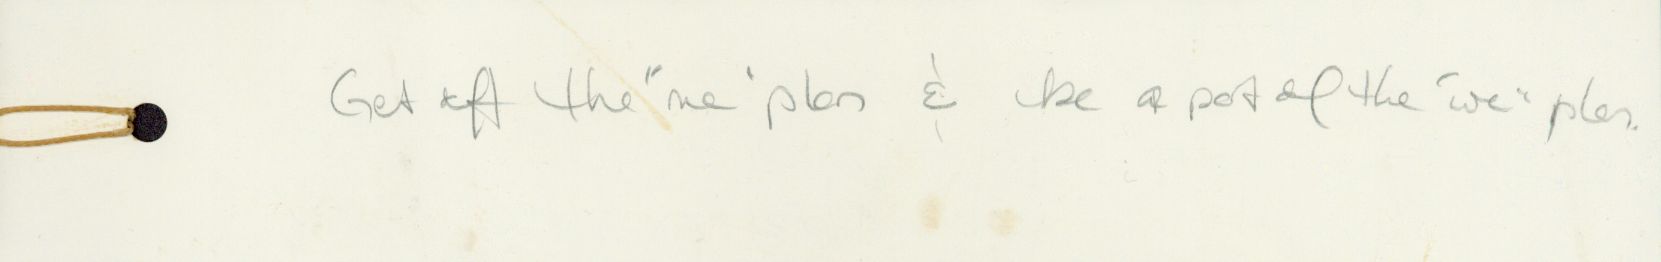 Get off the "me" plan & be a part of the "we" plan.